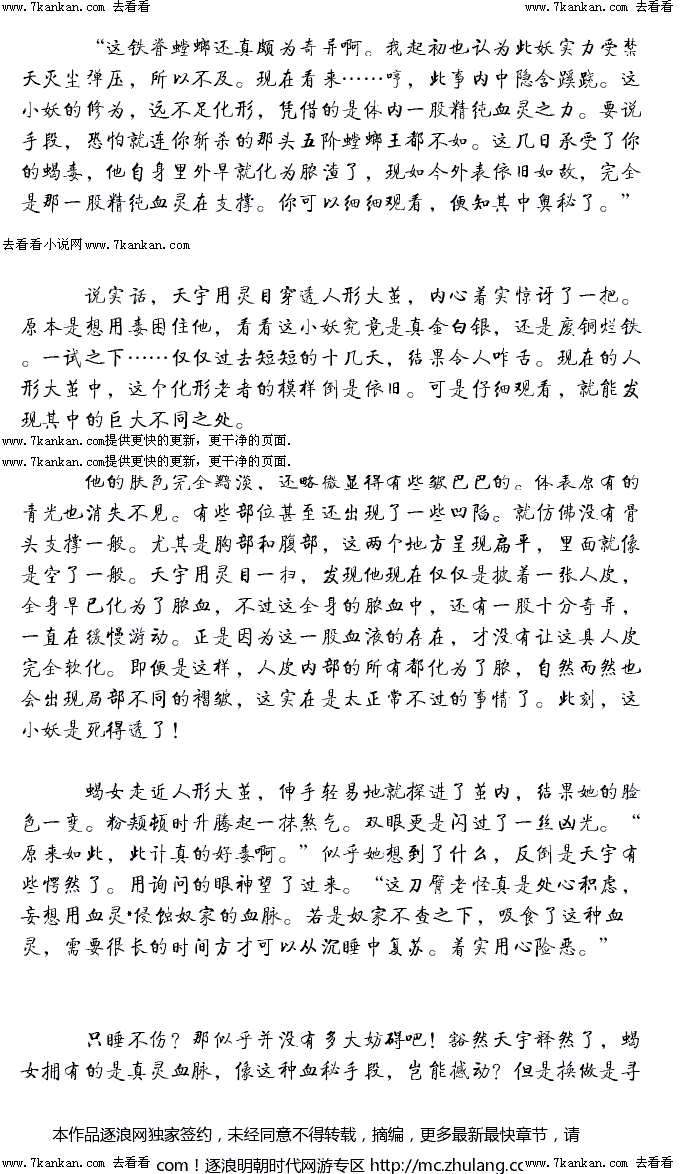 www.7kankan.com 去看看 www.7kankan.com 去看看
“这铁脊螳螂还真颇为奇异啊。我起初也认为此妖实力受禁
天灭尘弹压，所以不及。现在看来……哼，此事内中隐含蹊跷。这
小妖的修为，远不足化形，凭借的是体内一股精纯血灵之力。要说
手段，恐怕就连你斩杀的那头五阶螳螂王都不如。这几日承受了你
的蝎毒，他自身里外早就化为脓渣了，现如今外表依旧如故，完全
是那一股精纯血灵在支撑。你可以细细观看，便知其中奥秘了。”
去看看小说网www.7kankan.com
说实话，天宇用灵目穿透人形大茧，内心着实惊讶了一把。
原本是想用毒困住他，看看这小妖究竟是真金白银，还是废铜烂铁
。一试之下……仅仅过去短短的十几天，结果令人咋舌。现在的人
形大茧中，这个化形老者的模样倒是依旧。可是仔细观看，就能发
现其中的巨大不同之处。
www.7kankan.com提供更快的更新，更干净的页面.
www.7kankan.com提供更快的更新，更干净的页面.
他的肤色完全黯淡，还略微显得有些皱巴巴的。体表原有的
青光也消失不见。有些部位甚至还出现了一些凹陷。就仿佛没有骨
头支撑一般。尤其是胸部和腹部，这两个地方呈现扁平，里面就像
是空了一般。天宇用灵目一扫，发现他现在仅仅是披着一张人皮，
全身早已化为了脓血，不过这全身的脓血中，还有一股十分奇异，
一直在缓慢游动。正是因为这一股血液的存在，才没有让这具人皮
完全软化。即便是这样，人皮内部的所有都化为了脓，自然而然也
会出现局部不同的褶皱，这实在是太正常不过的事情了。此刻，这
小妖是死得透了！
蝎女走近人形大茧，伸手轻易地就探进了茧内，结果她的脸
色一变。粉颊顿时升腾起一抹煞气。双眼更是闪过了一丝凶光。“
原来如此，此计真的好毒啊。”似乎她想到了什么，反倒是天宇有
些愕然了。用询问的眼神望了过来。“这刀臂老怪真是处心积虑，
妄想用血灵·侵蚀奴家的血脉。若是奴家不查之下，吸食了这种血
灵，需要很长的时间方才可以从沉睡中复苏。着实用心险恶。”
只睡不伤？那似乎并没有多大妨碍吧！豁然天宇释然了，蝎
女拥有的是真灵血脉，像这种血秘手段，岂能撼动？但是换做是寻
本作品逐浪网独家签约，未经同意不得转载，摘编，更多最新最快章节，请
www.7kankan.com 去看看 com！逐浪明朝时代网游专区 http://mc.zhulang.co www.7kankan.com 去看看